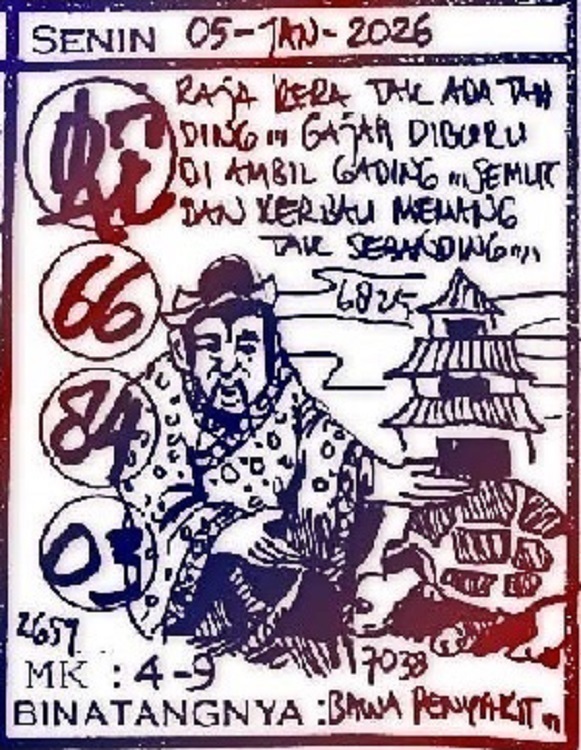 SENIN 05-JAN-2026
RAJA KERA TAK ADA TAN
DING ,,, GAJAH DIBURU
DI AMBIL GADING ,,, SEMUT
DAN KERBAU MEMANG
TAK SEBANDING ,,,,
66
6825
84
03
2659
7038
MK : 4-9
BINATANGNYA : BAWA PENYAKIT ,,